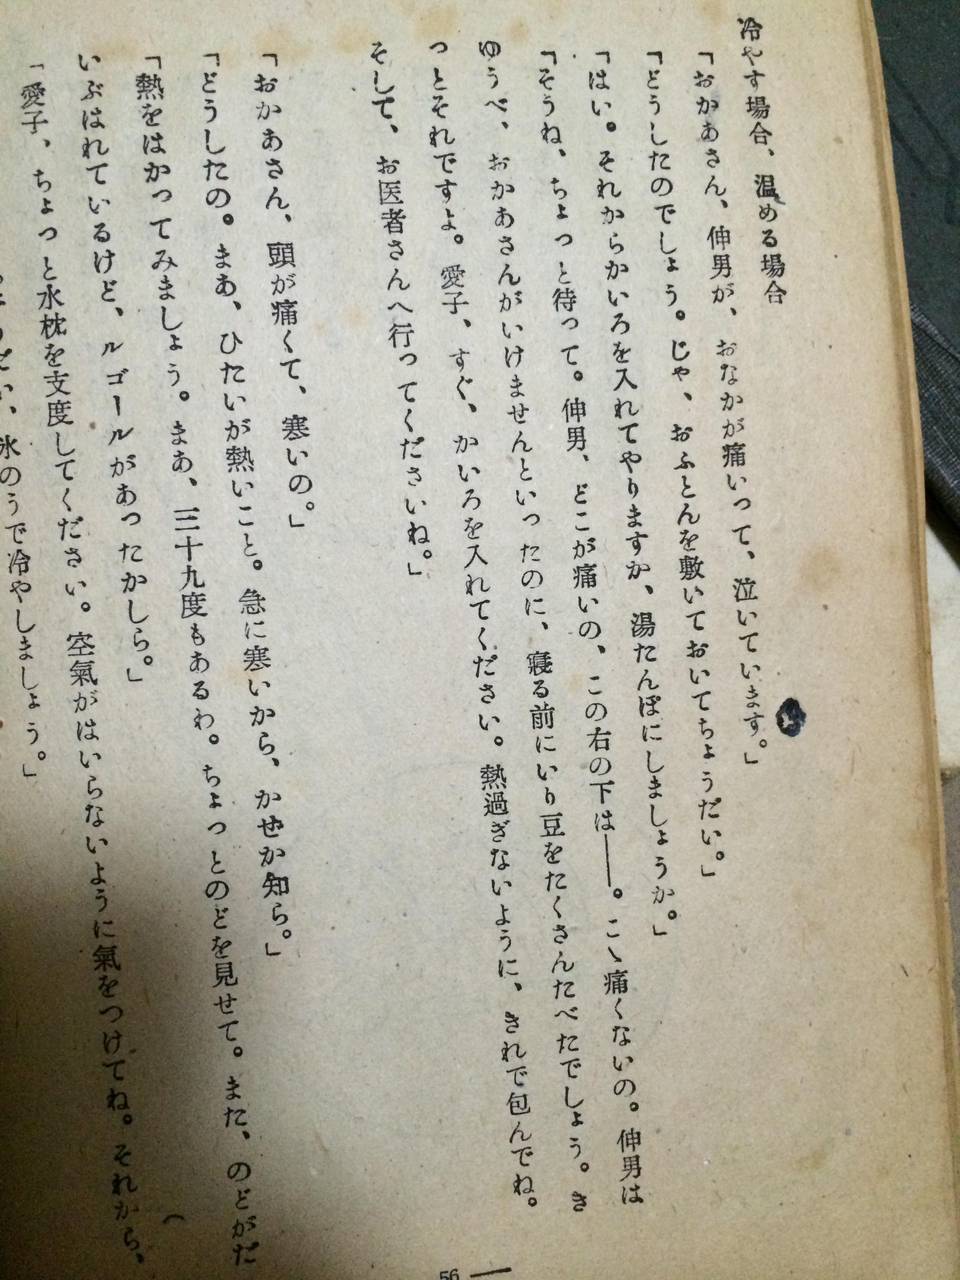 冷やす場合、温める場合
「おかあさん、伸男が、おなかが痛いって、泣いています。」
「どうしたのでしょう。じゃ、おふとんを敷いておいてちょうだい。」
「はい。それからかいろを入れてやりますか、湯たんぽにしましょうか。」
「そうね、ちょっと待って。伸男、どこが痛いの、この右の下は――。こゝ痛くないの。伸男は
ゆうべ、おかあさんがいけませんといったのに、寝る前にいり豆をたくさんたべたでしょう。き
っとそれですよ。愛子、すぐ、かいろを入れてください。熱過ぎないように、きれで包んでね。
そして、お医者さんへ行ってくださいね。」
「おかあさん、頭が痛くて、寒いの。」
「どうしたの。まあ、ひたいが熱いこと。急に寒いから、かぜか知ら。」
「熱をはかってみましょう。まあ、三十九度もあるわ。ちょっとのどを見せて。また、のどがだ
いぶはれているけど、ルゴールがあったかしら。」
「愛子、ちょっと水枕を支度してください。空氣がはいらないように氣をつけてね。それから、
氷のうで冷やしましょう。」
56